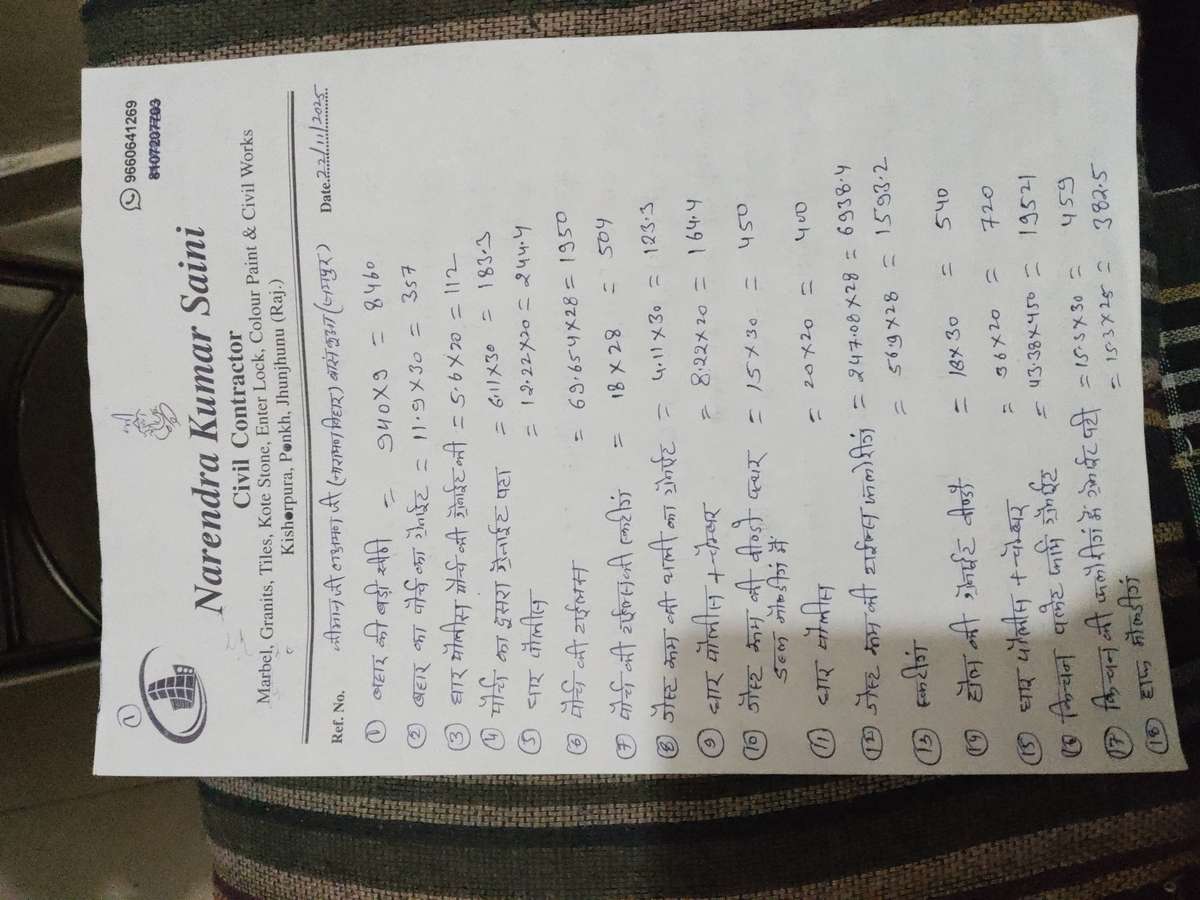 ①
9660641269
8107207703
Narendra Kumar Saini
Civil Contractor
Marbel, Granits, Tiles, Kote Stone, Enter Lock, Colour Paint & Civil Works
Kishorpura, Ponkh, Jhunjhunu (Raj.)
Ref. No. जी (नारायण विहार) (जयपुर) Date 22/11/2025
① बहार की बड़ी सीढी = 940×9 = 8460
② बहार का पोर्च का ग्रेनाईट = 11.9×30 = 357
③ धार पोलीस पोर्च की ग्रेनाईट की = 5.6×20 = 112
④ पोर्च का दुसरा ग्रेनाईट पटा = 6.11×30 = 183.3
⑤ धार पोलीस = 12.22×20 = 244.4
⑥ पोर्च की टाईल्स = 69.654×28 = 1950
⑦ पोर्च की टाईल्स की स्कटींग = 18×28 = 504
⑧ गेस्ट रूम की थली का ग्रेनाईट = 4.11×30 = 123.3
⑨ धार पोलीस + चेम्बर = 8.22×20 = 164.4
⑩ गेस्ट रूम की वीण्डो पत्थर = 15×30 = 450
डबल मोल्डींग में
⑪ धार पोलीस = 20×20 = 400
⑫ गेस्ट रूम की टाईल्स फ्लोरींग = 247.08×28 = 6938.4
⑬ स्कटींग = 569×28 = 1593.2
⑭ होल की ग्रेनाईट वीण्डो = 18×30 = 540
⑮ धार पोलीस + चेम्बर = 36×20 = 720
⑯ किचन पलेट फार्म ग्रेनाईट = 43.38×450 = 19521
⑰ किचन की फ्लोरींग में ग्रेनाईट पटी = 15.3×30 = 459
⑱ हाफ मोल्डींग = 15.3×25 = 382.5